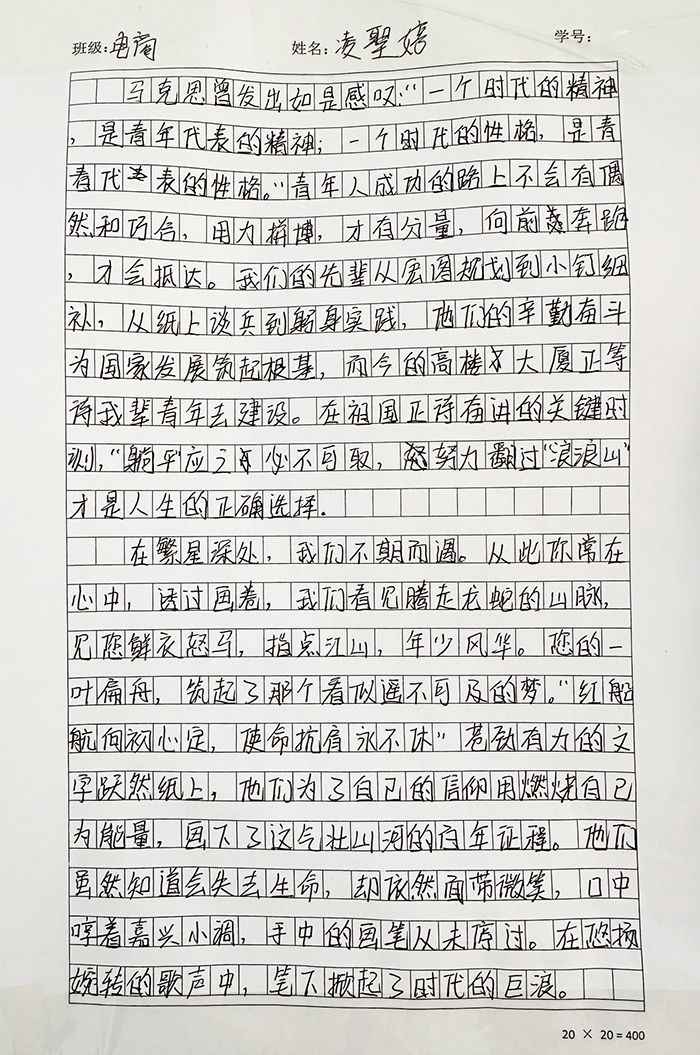 班级:电商 姓名:凌翠婷 学号:
马克思曾发出如是感叹:“一个时代的精神
,是青年代表的精神;一个时代的性格,是青
春代表的性格。”青年人成功的路上不会有偶
然和巧合,用力拼博,才有分量,向前奔跑
,才会抵达。我们的先辈从宏图规划到小钉细
补,从纸上谈兵到躬身实践,他们的辛勤奋斗
为国家发展筑起根基,而今的高楼大厦正等
待我辈青年去建设。在祖国正待奋进的关键时
刻,“躺平”应之必不可取,努力翻过“浪浪山”
才是人生的正确选择.
在繁星深处,我们不期而遇。从此你常在
心中,透过画卷,我们看见腾走龙蛇的山脉,
见您鲜衣怒马,指点江山,年少风华。您的一
叶扁舟,筑起了那个看似遥不可及的梦。“红船
航向初心定,使命抗肩永不休”苍劲有力的文
字跃然纸上,他们为了自己的信仰用燃烧自己
为能量,画下了这气壮山河的百年征程。他们
虽然知道会失去生命,却依然面带微笑,口中
哼着嘉兴小调,手中的画笔从未停过。在悠扬
婉转的歌声中,笔下掀起了时代的巨浪。
20 × 20 = 400